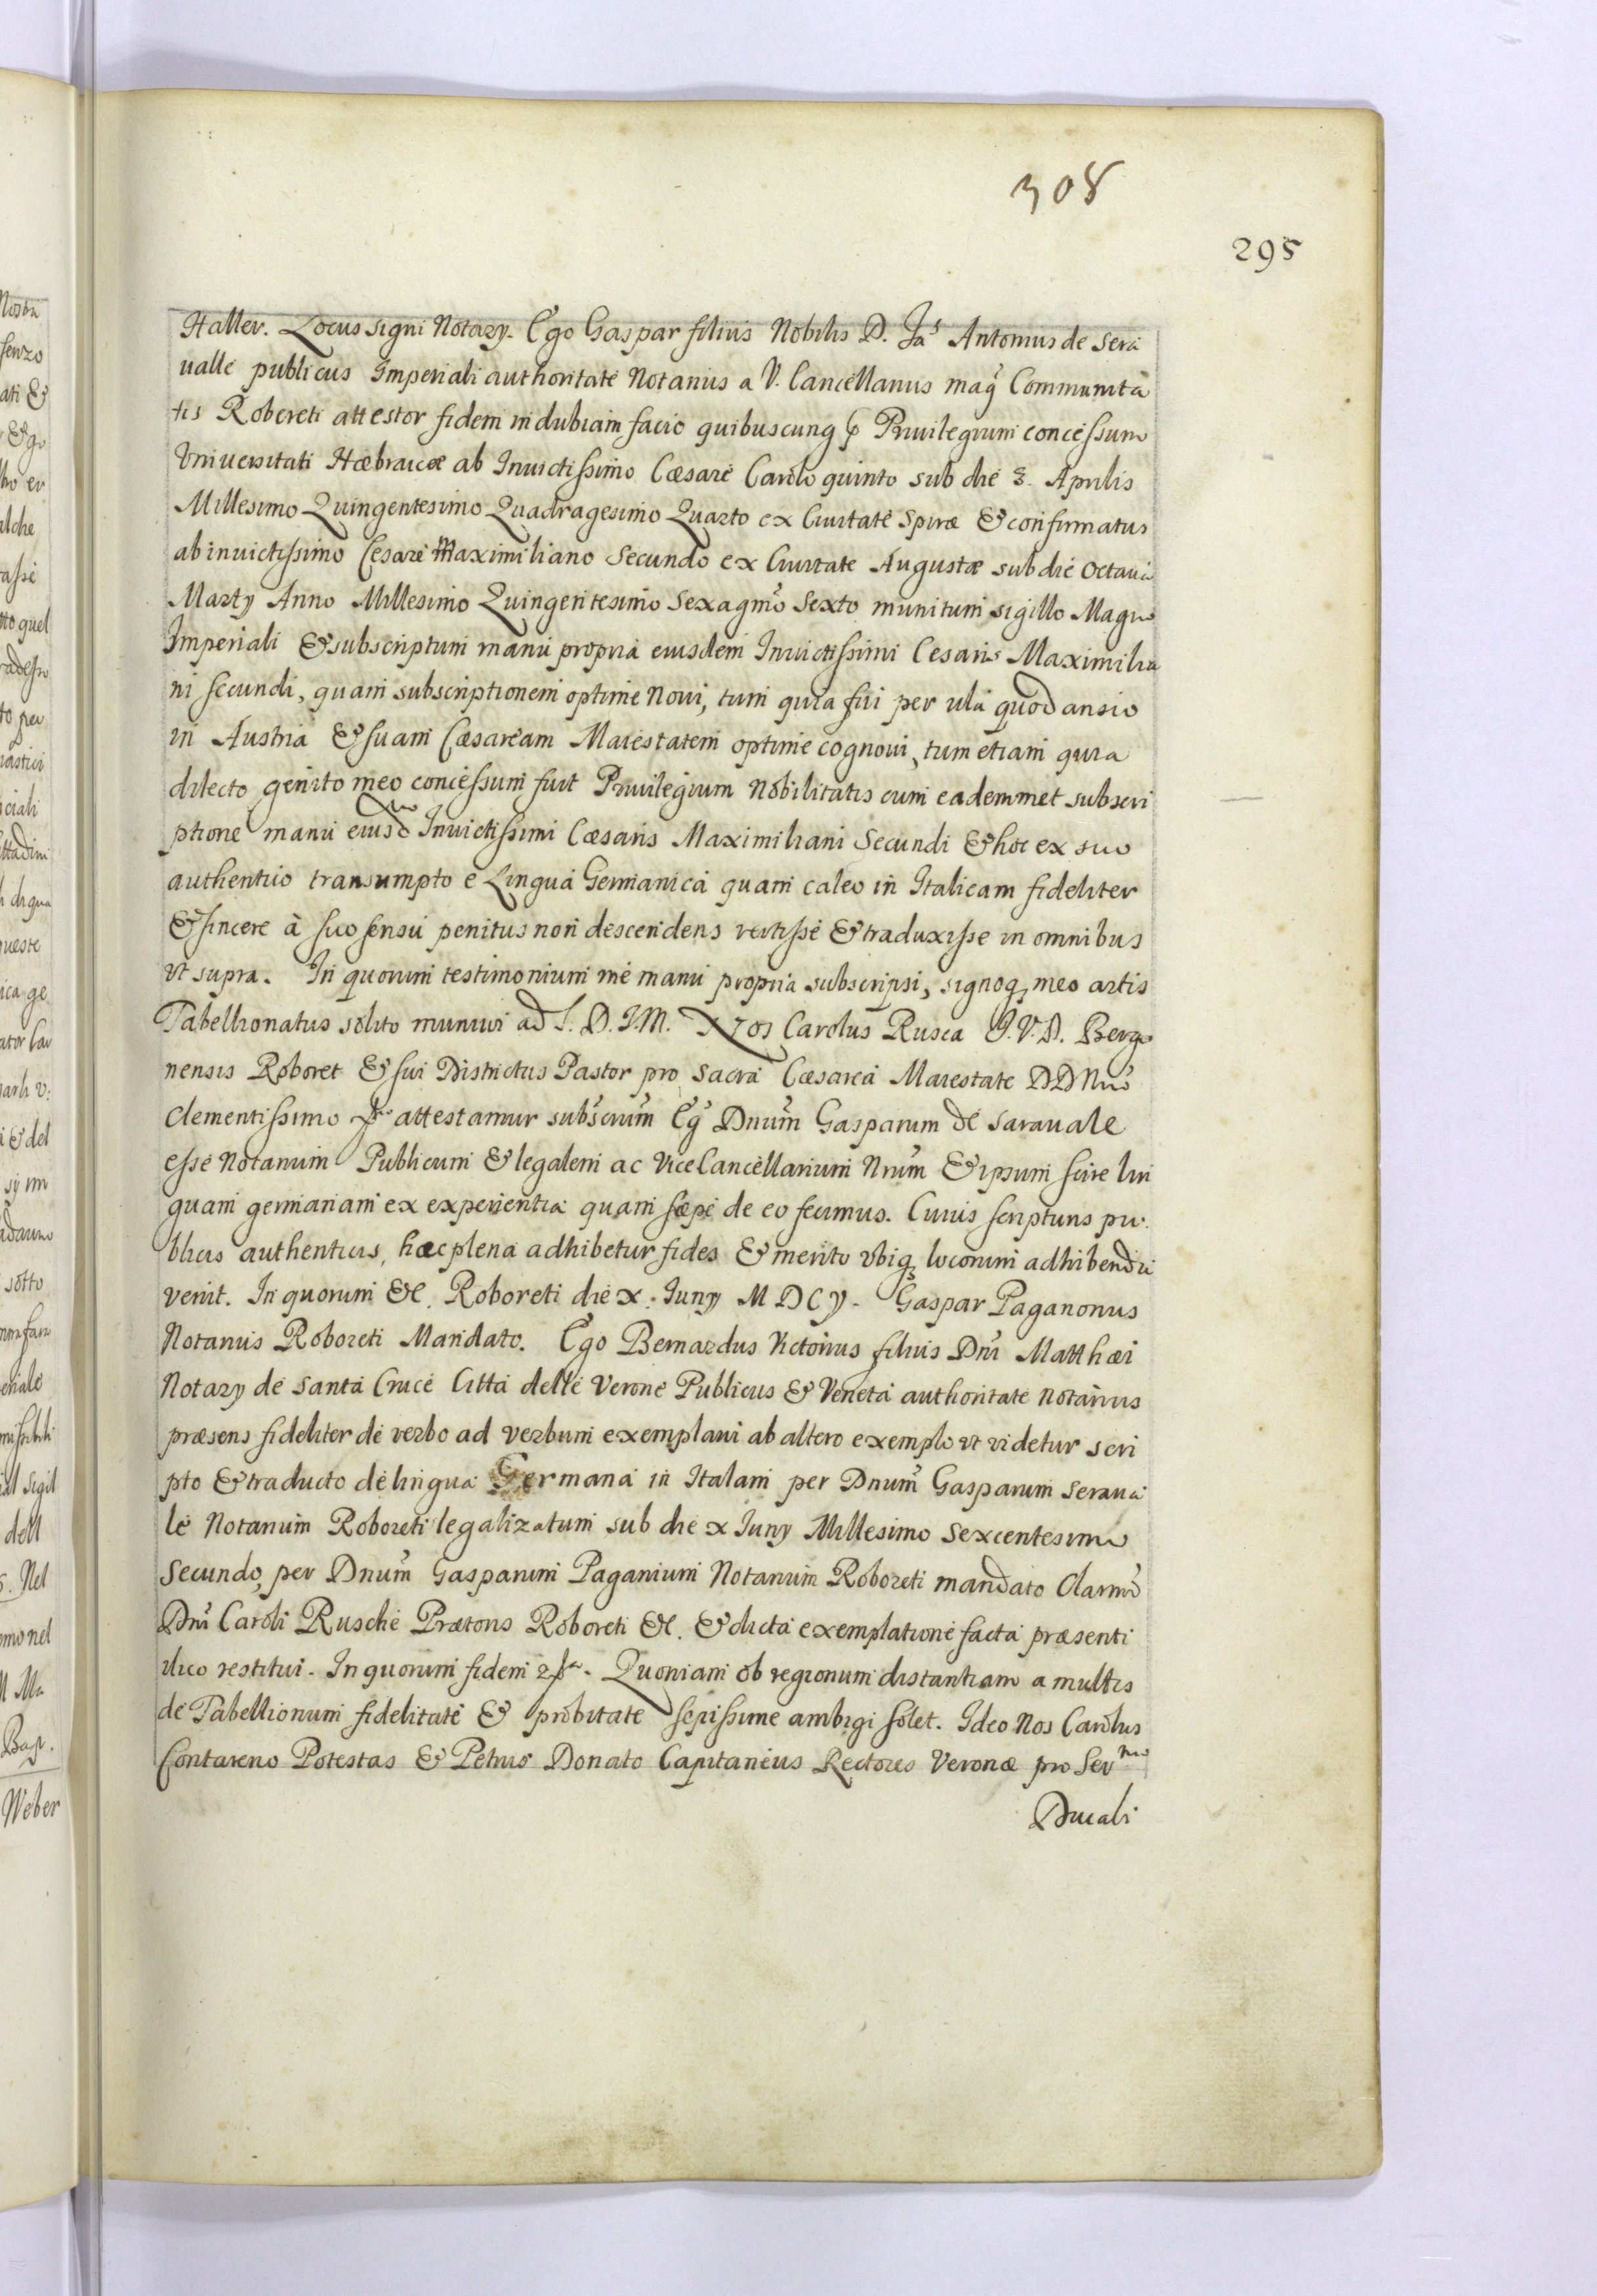 308
295
Haller. Locus signi Notarÿ. Ego Gaspar filius Nobilis D. Antonius de Sera
ualle publicus Imperiali authoritate Notarius a V. Cancellarius mag. Communita
tis Robereti attestor fidem indubiam facio quibuscunq Priuilegium concessum
Vniuersitati Hæbraicæ ab Inuictissimo Cæsare Carolo quinto sub die 3. Aprilis
Millesimo Quingentesimo Quadragesimo Quarto ex Ciuitate Spiræ & confirmatus
ab inuictissimo Cesare Maximiliano Secundo ex Ciuitate Augustæ sub die octaua
Martÿ Anno Millesimo Quingentesimo Sexagmo Sexto munitum sigillo Magno
Imperiali & subscriptum manu propria eiusdem Inuictissimi Cesaris Maximilia
ni secundi, quam subscriptionem optime noui, tum quia fui per
in Austria & suam Cæsaream Maiestatem optime cognoui, tum etiam quia
dilecto genito meo concessum fuit Priuilegium Nobilitatis cum eademmet subscri
ptione manu eiusd Inuictissimi Cæsaris Maximiliani Secundi & hoc ex suo
authentico transumpto e Lingua Germanica quam caleo in Italicam fideliter
& sincere à suo sensu penitus non descendens vertisse & traduxisse in omnibus
vt supra. In quorum testimonium me manu propria subscripsi, signoq meo artis
Tabellionatus solito muniui ad L. D. I. M. Nos Carolus Rusca I. V. D. Bergo
nensis Roboret & sui Districtus Pastor pro Sacra Cæsarea Maiestate DD Nro
Clementissimo attestamur Dnum Gasparum de Sarauale
esse Notarium Publicum & legalem ac Vice Cancellarium Nrum & ipsum scire lin
guam germanam ex experientia quam sæpe de eo fecimus. Cuius scripturis pu
blicis authenticis, hæc plena adhibetur fides & merito vbiq locorum adhibendi
venit. In quorum &c. Roboreti die x. Iunÿ MDCÿ. Gaspar Paganonus
Notarius Roboreti Mandato. Ego Bernardus Victorius filius Dni Matthæi
Notarÿ de Santa Cruce Citta delle Verone Publicus & Veneta authoritate Notarius
præsens fideliter de verbo ad verbum exemplaui ab altero exemplo vt videtur scri
pto & traducto de lingua Germana in Italam per Dnum Gasparum Seraua
le Notarium Roboreti legalizatum sub die x Iunÿ Millesimo Sexcentesimo
Secundo, per Dnum Gasparum Paganium Notarium Roboreti mandato Clarmi
Dni Caroli Rusche Prætoris Roboreti &c. & dicta exemplatione facta præsenti
illico restitui. In quorum fidem Quoniam ob regionum distantiam a multis
de Tabellionum fidelitate & probitate sepissime ambigi solet. Ideo Nos Carolus
Contareno Potestas & Petrus Donato Capitaneus Rectores Veronæ pro Sermo
Ducali